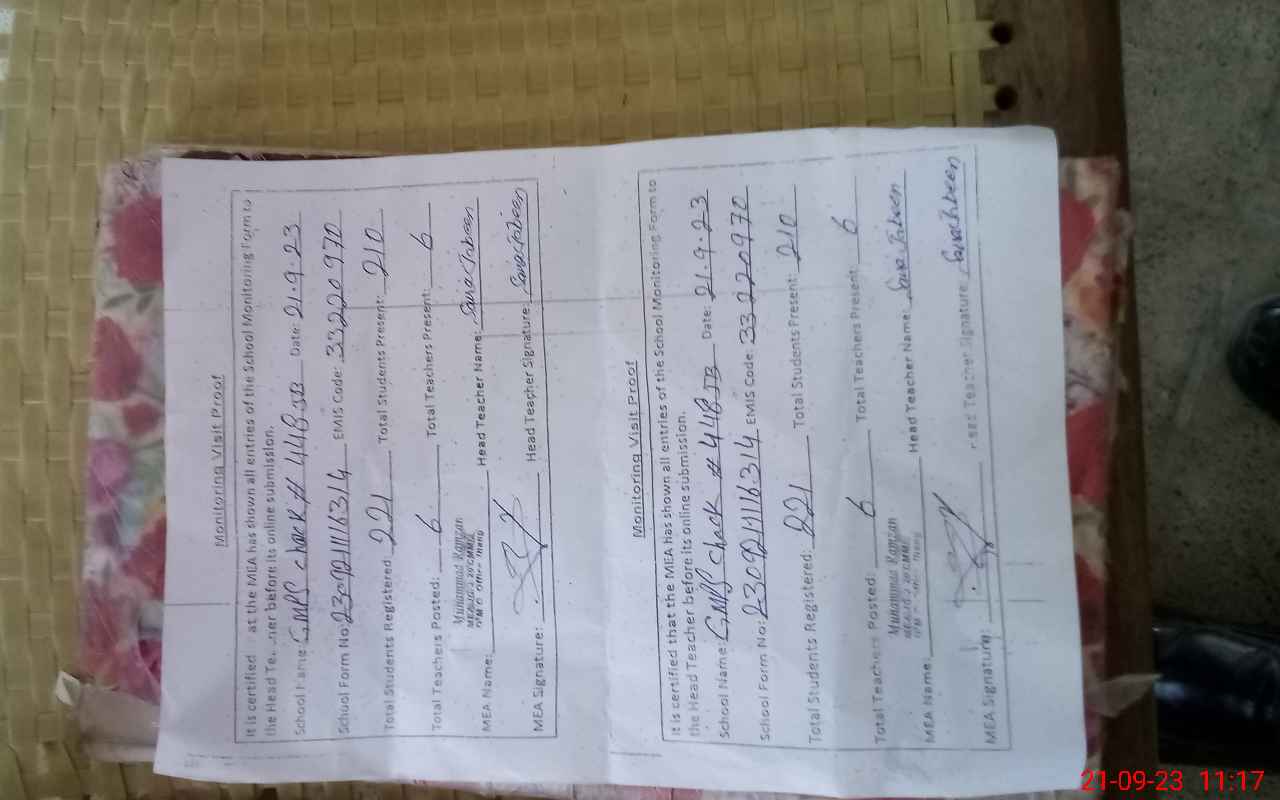 Monitoring Visit Proof
It is certified at the MEA has shown all entries of the School Monitoring Form to
the Head Te. .ner before its online submission.
School Name: GMPS Chack # 448 JB Date: 21.9.23
School Form No: EMIS Code: 33220970
Total Students Registered: 221 Total Students Present: 210
Total Teachers Posted: 6 Total Teachers Present: 6
Muhammad Ramzan
MEA Name: Head Teacher Name: Saira Jabeen
MEA Signature: Head Teacher Signature: Saira Jabeen
Monitoring Visit Proof
It is certified that the MEA has shown all entries of the School Monitoring Form to
the Head Teacher before its online submission.
School Name: GMPS Chack # 448 JB Date: 21.9.23
School Form No: EMIS Code: 33220970
Total Students Registered: 221 Total Students Present: 210
Total Teachers Posted: 6 Total Teachers Present: 6
Muhammad Ramzan
MEA Name: Head Teacher Name: Saira Jabeen
MEA Signature: Head Teacher Signature: Saira Jabeen
21-09-23 11:17